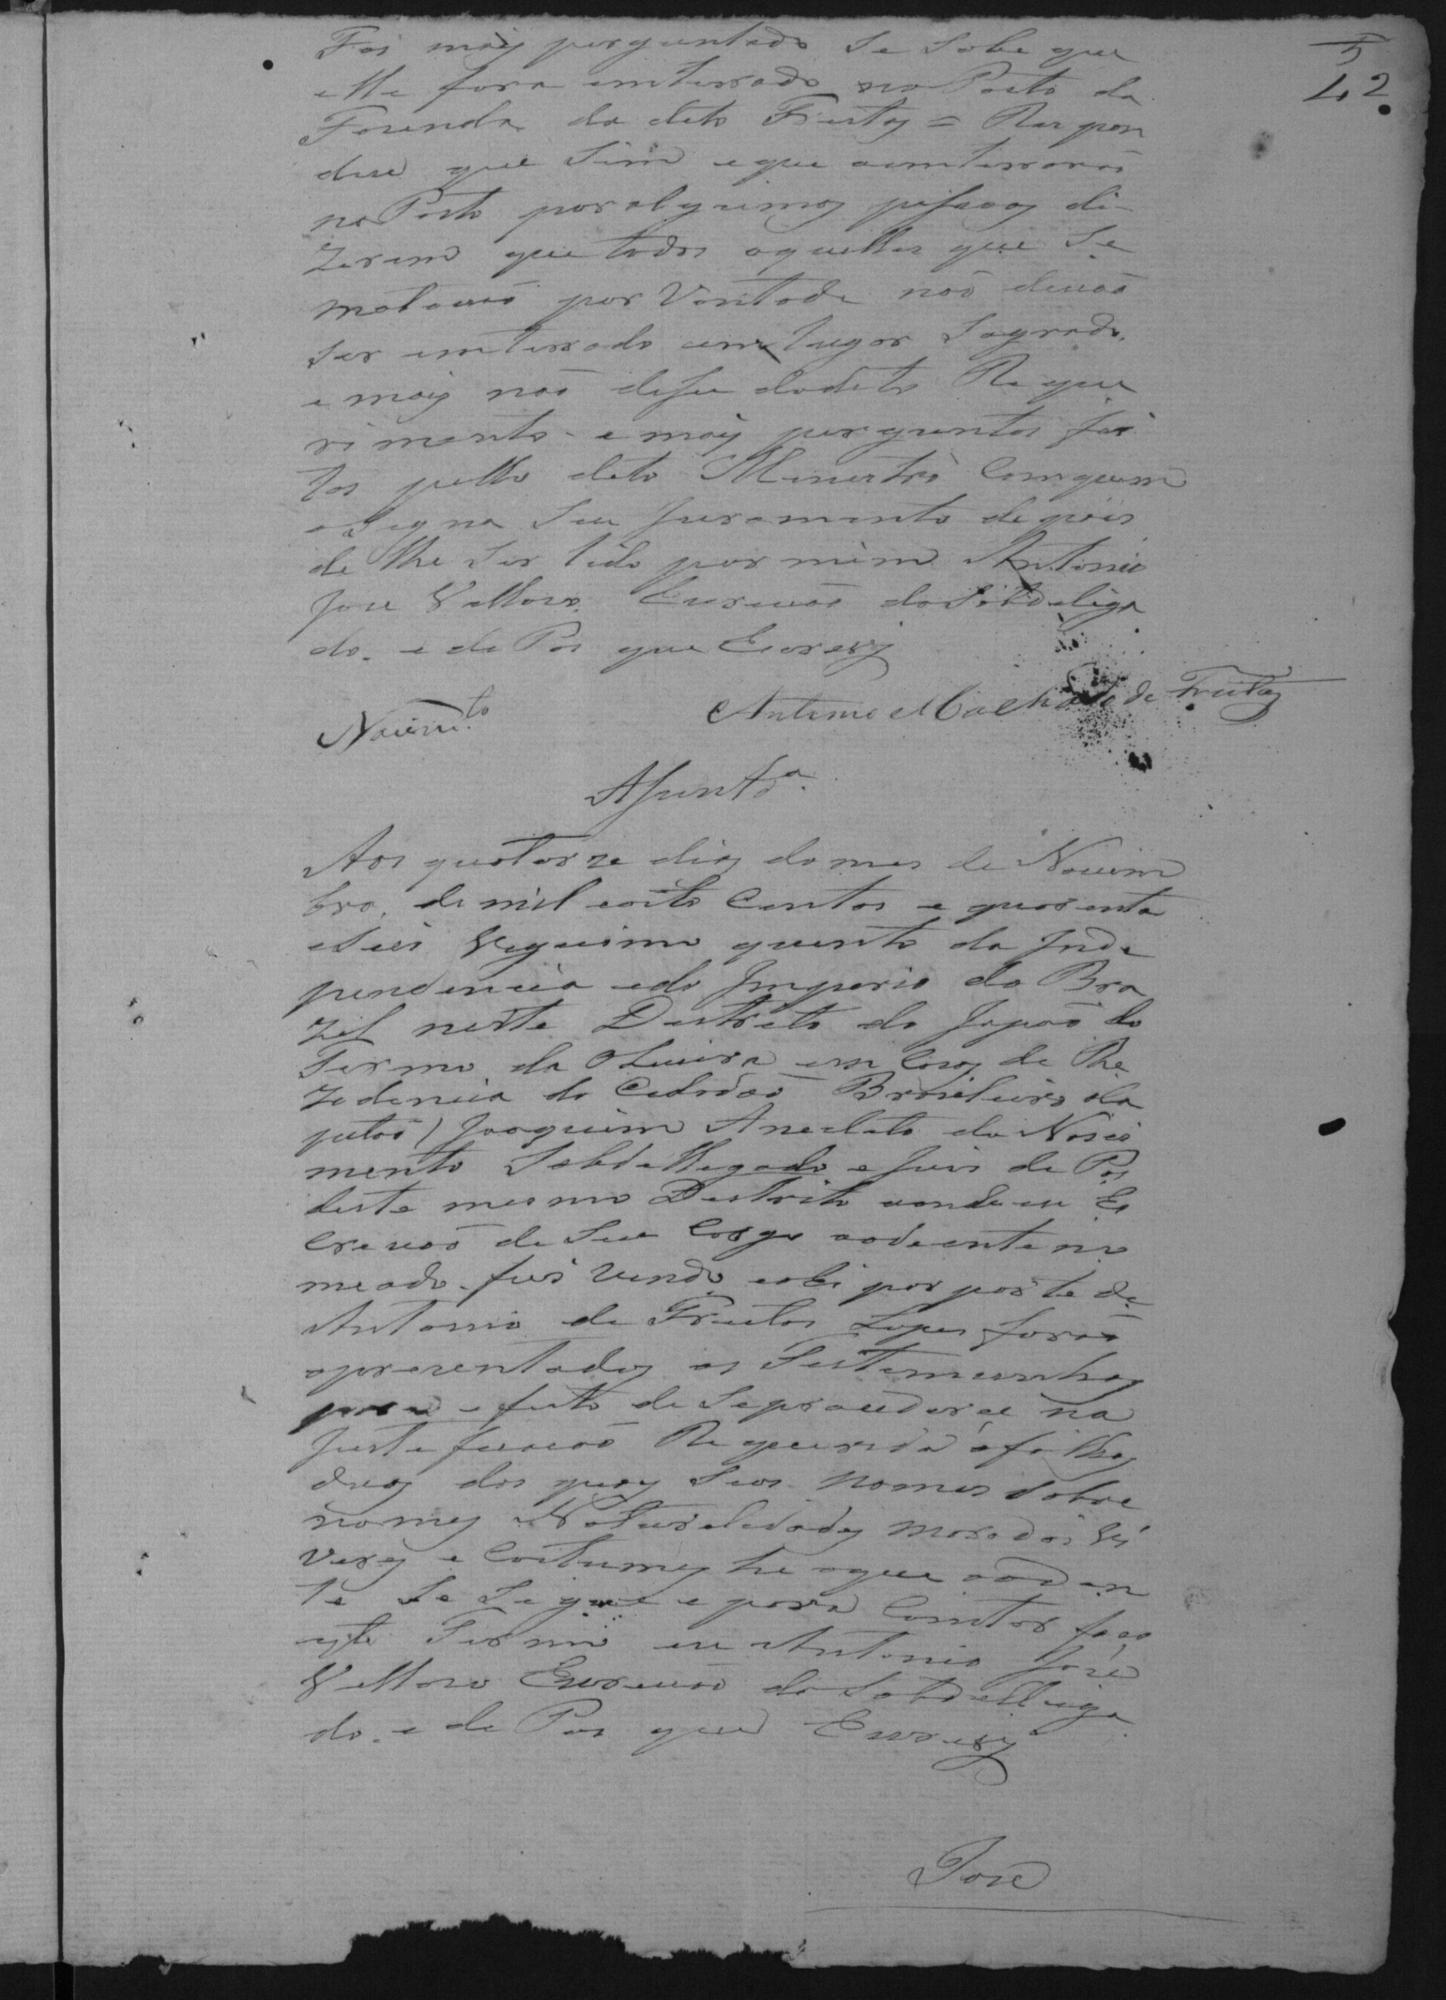 5
42
Foi mais perguntado se sabe que
elle fora emterrado no Pasto da
Fazenda do dito Freitas = Respon
deu que sim e que o emterrarão
no Pasto por algumas pesoas di
zerem que todos aquelles que se
matavão por Vontade não devião
ser emterrado em lugar Sagrado.
e mais não dise do dito Reque
rimento e mais perguntas fei
tas pello dito Menistro Com quem
asigna seu Juramento depois
de lhe ser lido por mim Antonio
Jose Vellozo Escrivão do Sobdeliga
do. e de Pas que Escrevy
Nacim.to
Antonio Machado de Freitas
Asent.da
Aos quatorze dias do mes de Novem
bro de mil eoito Centos e quarenta
eseis Vegecimo quinto da Inde
pendencia edo Imperio do Bra
zil neste Destrito do Japão do
Termo da Oliveira em Cazas de Re
zedencia do Cidadão Brazileiro
Joaquim Anecleto do Nasci
mento Sobdellegado e Juis de Pas
deste mesmo Destrito aonde eu Es
crivão de seu Cargo aodeante no
meado fui vindo eahi por parte de
Antonio de Freitas Lopes forão
aprezentadas as Testemunhas
para efeito de seproceder na
Justeficação Requerida afolhas
duas dos quais seus nomes sobre
nomes Naturalidades moradas Vi
veres e Costumes he oque aodean
te se segue e para Constar faco
este Termo eu Antonio Jose
Vellozo Escrivão do Sobdelliga
do. e de Pas que Escrevy
Jose